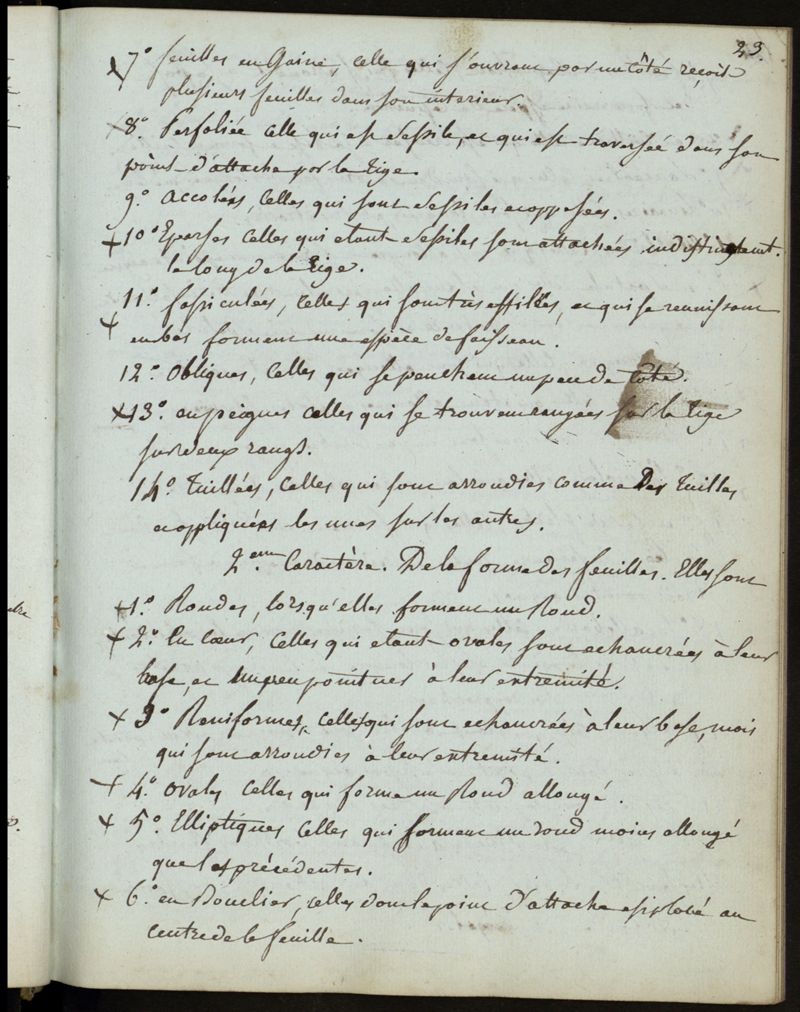 23.
+ 7° feuilles en Gaine, celle qui s'ouvrant par un côté reçoit
plusieurs feuilles dans son interieur.
+ 8°. Perfoliée celle qui est sessile, et qui est traversée dans son
point d'attache par la tige.
9° accolées, celles qui sont sessiles et opposées.
+ 10° Eparses celles qui etant sessiles sont attachées
le long de la tige.
11° fasiculées, celles qui sont très effilées, et qui se reunissant
+ en bas forment une espèce de faisseau.
12° Obliques, celles qui se penchent un peu de côté.
+ 13°. en peignes celles qui se trouvent rangées sur la tige
sur deux rangs.
14° Tuillées, celles qui sont arrondies comme des tuilles
et appliquées les unes sur les autres.
2.eme Caractère. De la forme des feuilles. Elles sont
+ 1.° Rondes, lorsqu'elles forment un Rond.
+ 2.° En cœur, celles qui etant ovales sont echancrées à leur
base, et un peu pointues à leur extremité.
+ 3° Reniformes, celles qui sont echancrées à leur base, mais
qui sont arrondies à leur extremité.
+ 4.° ovales celles qui forme un Rond allongé.
+ 5°. Elliptiques celles qui forment un rond moins allongé
que les précédentes.
+ 6.° en Bouclier, celles dont le point d'attache est placé au
centre de la feuille.